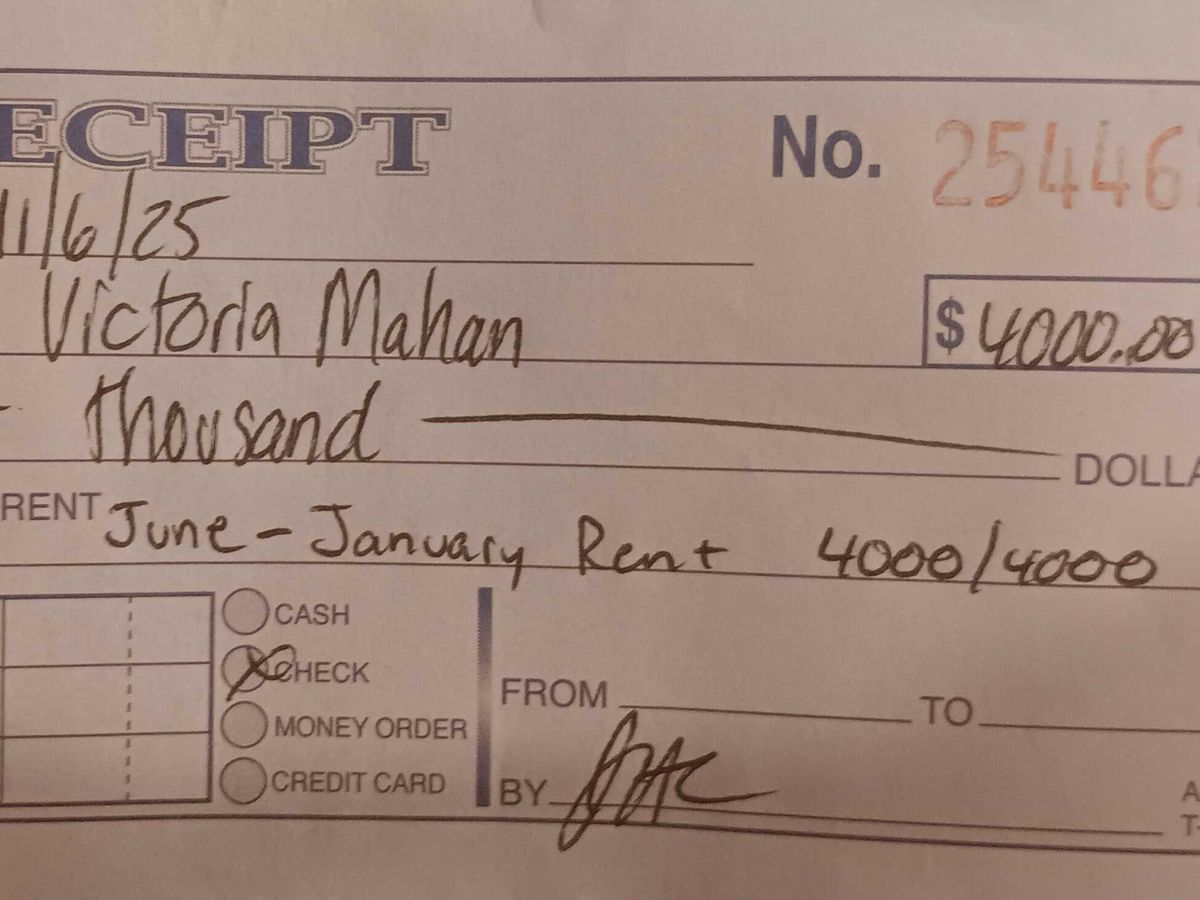 ECEIPT No. 25446
11/6/25
Victoria Mahan $4000.00
thousand DOLLA
RENT June - January Rent 4000/4000
CASH
CHECK
MONEY ORDER
CREDIT CARD
FROM TO
BY